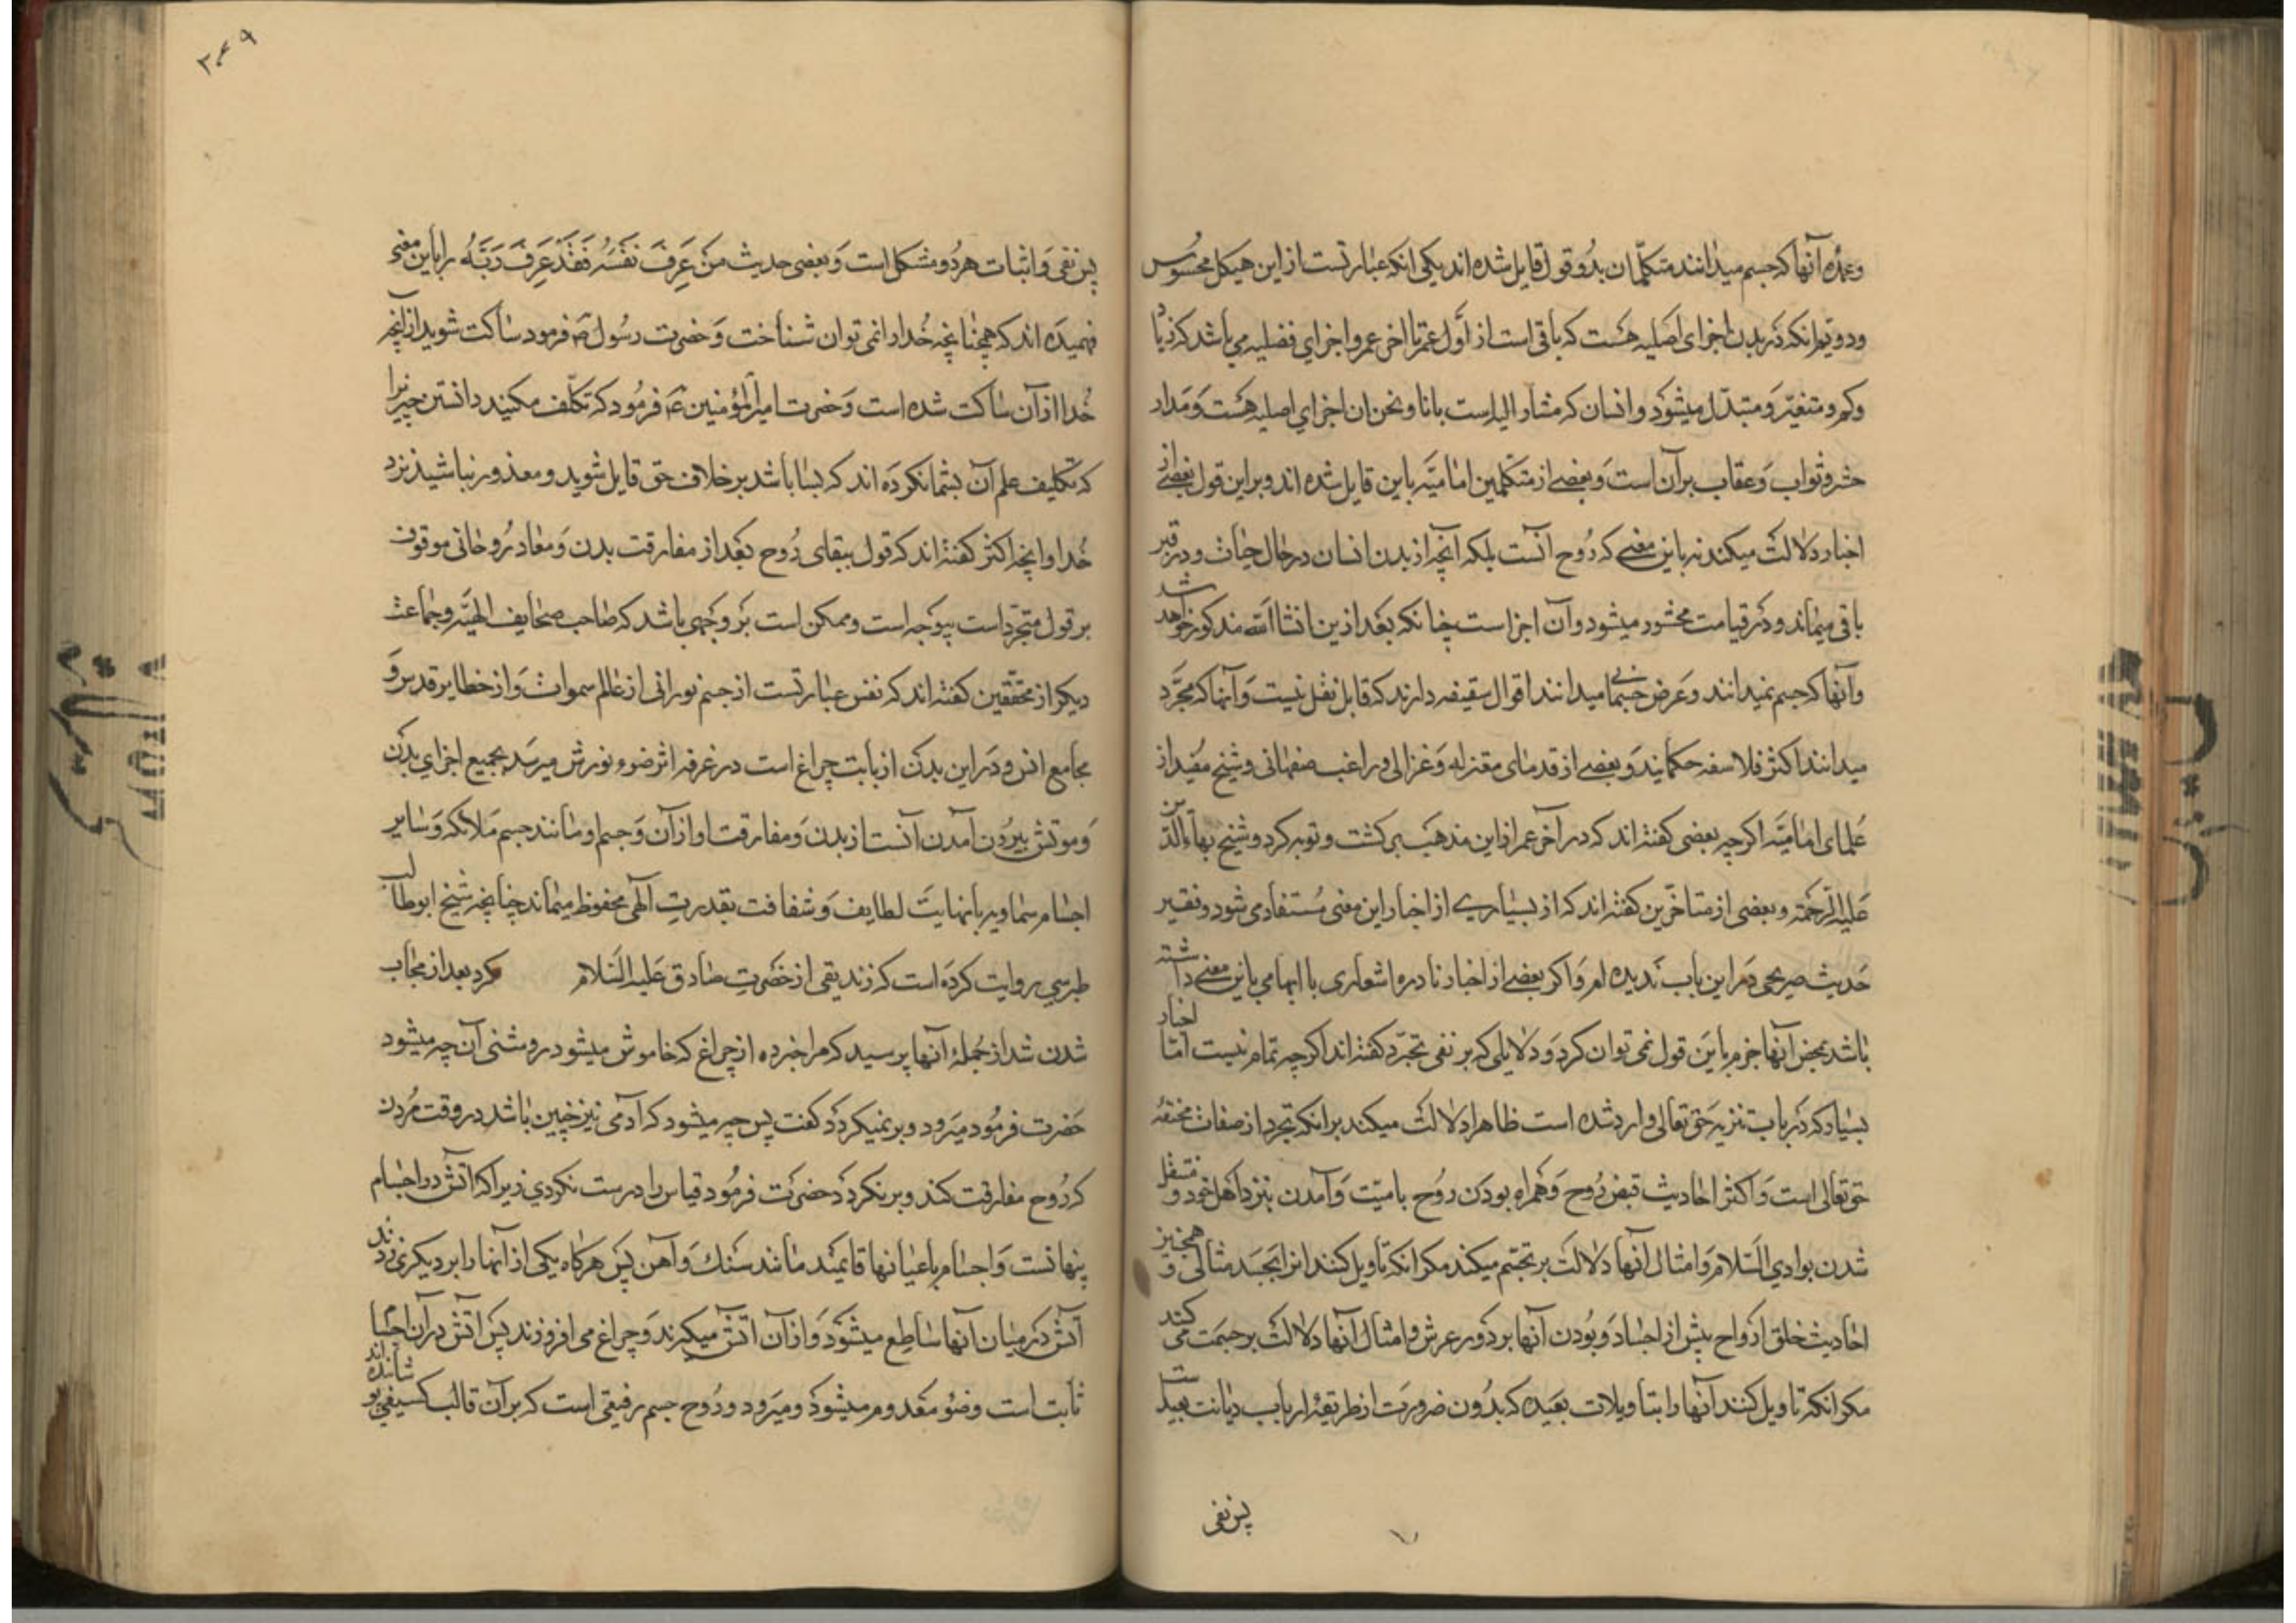 وعمده آنها که جسم میدانند متکلّمان بدو قول قایل شده اند یکی انکه عبارتست از این هیکل محسوس
ودویّم انکه در بدن اجزای اصلیه هست که باقی است از اول عمر تا اخر عمر واجزای فضلیه می باشد که زیاد
وکم ومتغیّر ومتبدّل میشود وانسان که مشار الیه است بانا ونحن ان اجزای اصلیه هست ومدار
حشر وثواب وعقاب بر آن است وبعضے از متکلّمین امامیّه باین قایل شده اند وبر این قول بعضے از
اخبار دلالت میکند نه باین معنے که روح آنست بلکه انچه از بدن انسان در حال حیات ودر قبر
باقی میماند ودر قیامت محشور میشود وآن اجزاست چنانکه بعد ازین انشاالله مذکور خواهد شد
وآنها که جسم نمیدانند وعرض جسمانی میدانند اقوال سقیفه دارند که قابل نقل نیست وآنها که مجرّد
میدانند اکثر فلاسفه حکمایند وبعضے از قدمای معتزله وغزالی وراغب صفهانی وشیخ مفید از
علمای امامیّه اکرچه بعضی کفته اند که در آخر عمر از این مذهب برکشت وتوبه کرد وشیخ بهآءالدّین
علیه الرّحمة وبعضی از متاخّرین کفته اند که از بسیارے از اخبار این معنی مستفاد می شود وفقیر
حدیث صریحی در این باب ندیده ام واکر بعضے از اخبار نادره اشعاری یا ابهامی باین معنے داشته
باشد بمحض آنها جزم باین قول نمی توان کرد ودلایلی که بر نفی تجرّد کفته اند اکرچه تمام نیست امّا اخبار
بسیار که در باب تنزیه حق تعالی وارد شده است ظاهرا دلالت میکند بر انکه تجرد از صفات مختصّه
حق تعالی است واکثر احادیث قبض روح وهمراه بودن روح با میّت وآمدن بنزد اهل خود ومنتقل
شدن بوادي السّلام وامثال آنها دلالت بر تجسّم میکند مکر انکه تاویل کنند انرا بجسد مثالی وهمچنین
احادیث خلق ارواح پیش از اجساد وبودن آنها بر دور عرش وامثال آنها دلالت بر جسمیت می کند
مکر انکه تاویل کنند آنها را بتاویلات بعیده که بدون ضرورت از طریقهٔ ارباب دیانت بعید است
پس نفی
۳۴۹
پس نفی واثبات هردو مشکل است وبعضی حدیث مَن عَرِفَ نَفسَهُ فَقَد عَرِفَ رَبَّهُ را باین معنی
فهمیده اند که همچنانچه خدا را نمی توان شناخت وحضرت رسول ص فرمود ساکت شوید از انچه
خدا از آن ساکت شده است وحضرت امیر المؤمنین ع فرمود که تکلّف مکنید دانستن چیزیرا
که تکلیف علم آن بشما نکرده اند که بسا باشد بر خلاف حق قایل شوید ومعذور نباشید نزد
خدا وانچه اکثر کفته اند که قول ببقای روح بعد از مفارقت بدن ومعاد روحانی موقوف
بر قول متجرّد است بیوجه است وممکن است بر وجهی باشد که صاحب صحایف الهیّه وجماعت
دیکر از محقّقین کفته اند که نفس عبارتست از جسم نورانی از عالم سموات واز خطایر قدس و
مجامع انس ودر این بدن از بابت چراغ است در غرفه اثر ضو ونورش میرسد بجمیع اجزای بدن
وموتش بیرون آمدن آنست از بدن ومفارقت او از آن وجسم او مانند جسم ملائکه وسایر
اجسام سماویه با نهایت لطایف وشفافت بقدرت الهی محفوظ میماند چنانچه شیخ ابوطالب
طبرسی روایت کرده است که زندیقی از حضرت صادق علیه السّلام کرد بعد از مجاب
شدن شد از جملهٔ آنها پرسید که مرا خبر ده از چراغ که خاموش میشود روشنی آن چه میشود
حضرت فرمود میرود وبر نمیکردد کفت پس چه میشود که آدمی نیز چنین باشد در وقت مردن
که روح مفارقت کند وبر نکردد حضرت فرمود قیاس را درست نکردی زیرا که آتش در اجسام
پنهانست واجسام باعیانها قائمند مانند سنک وآهن پس هرکاه یکی از آنها را بر دیکری زدند
آتش در میان آنها ساطع میشود واز آن آتش میکیرند وچراغ می افروزند پس آتش در آن اجسام
ثابت است وضوء معدوم میشود ومیرود وروح جسم رقیقی است که بر آن قالب کسیفی پوشانده اند